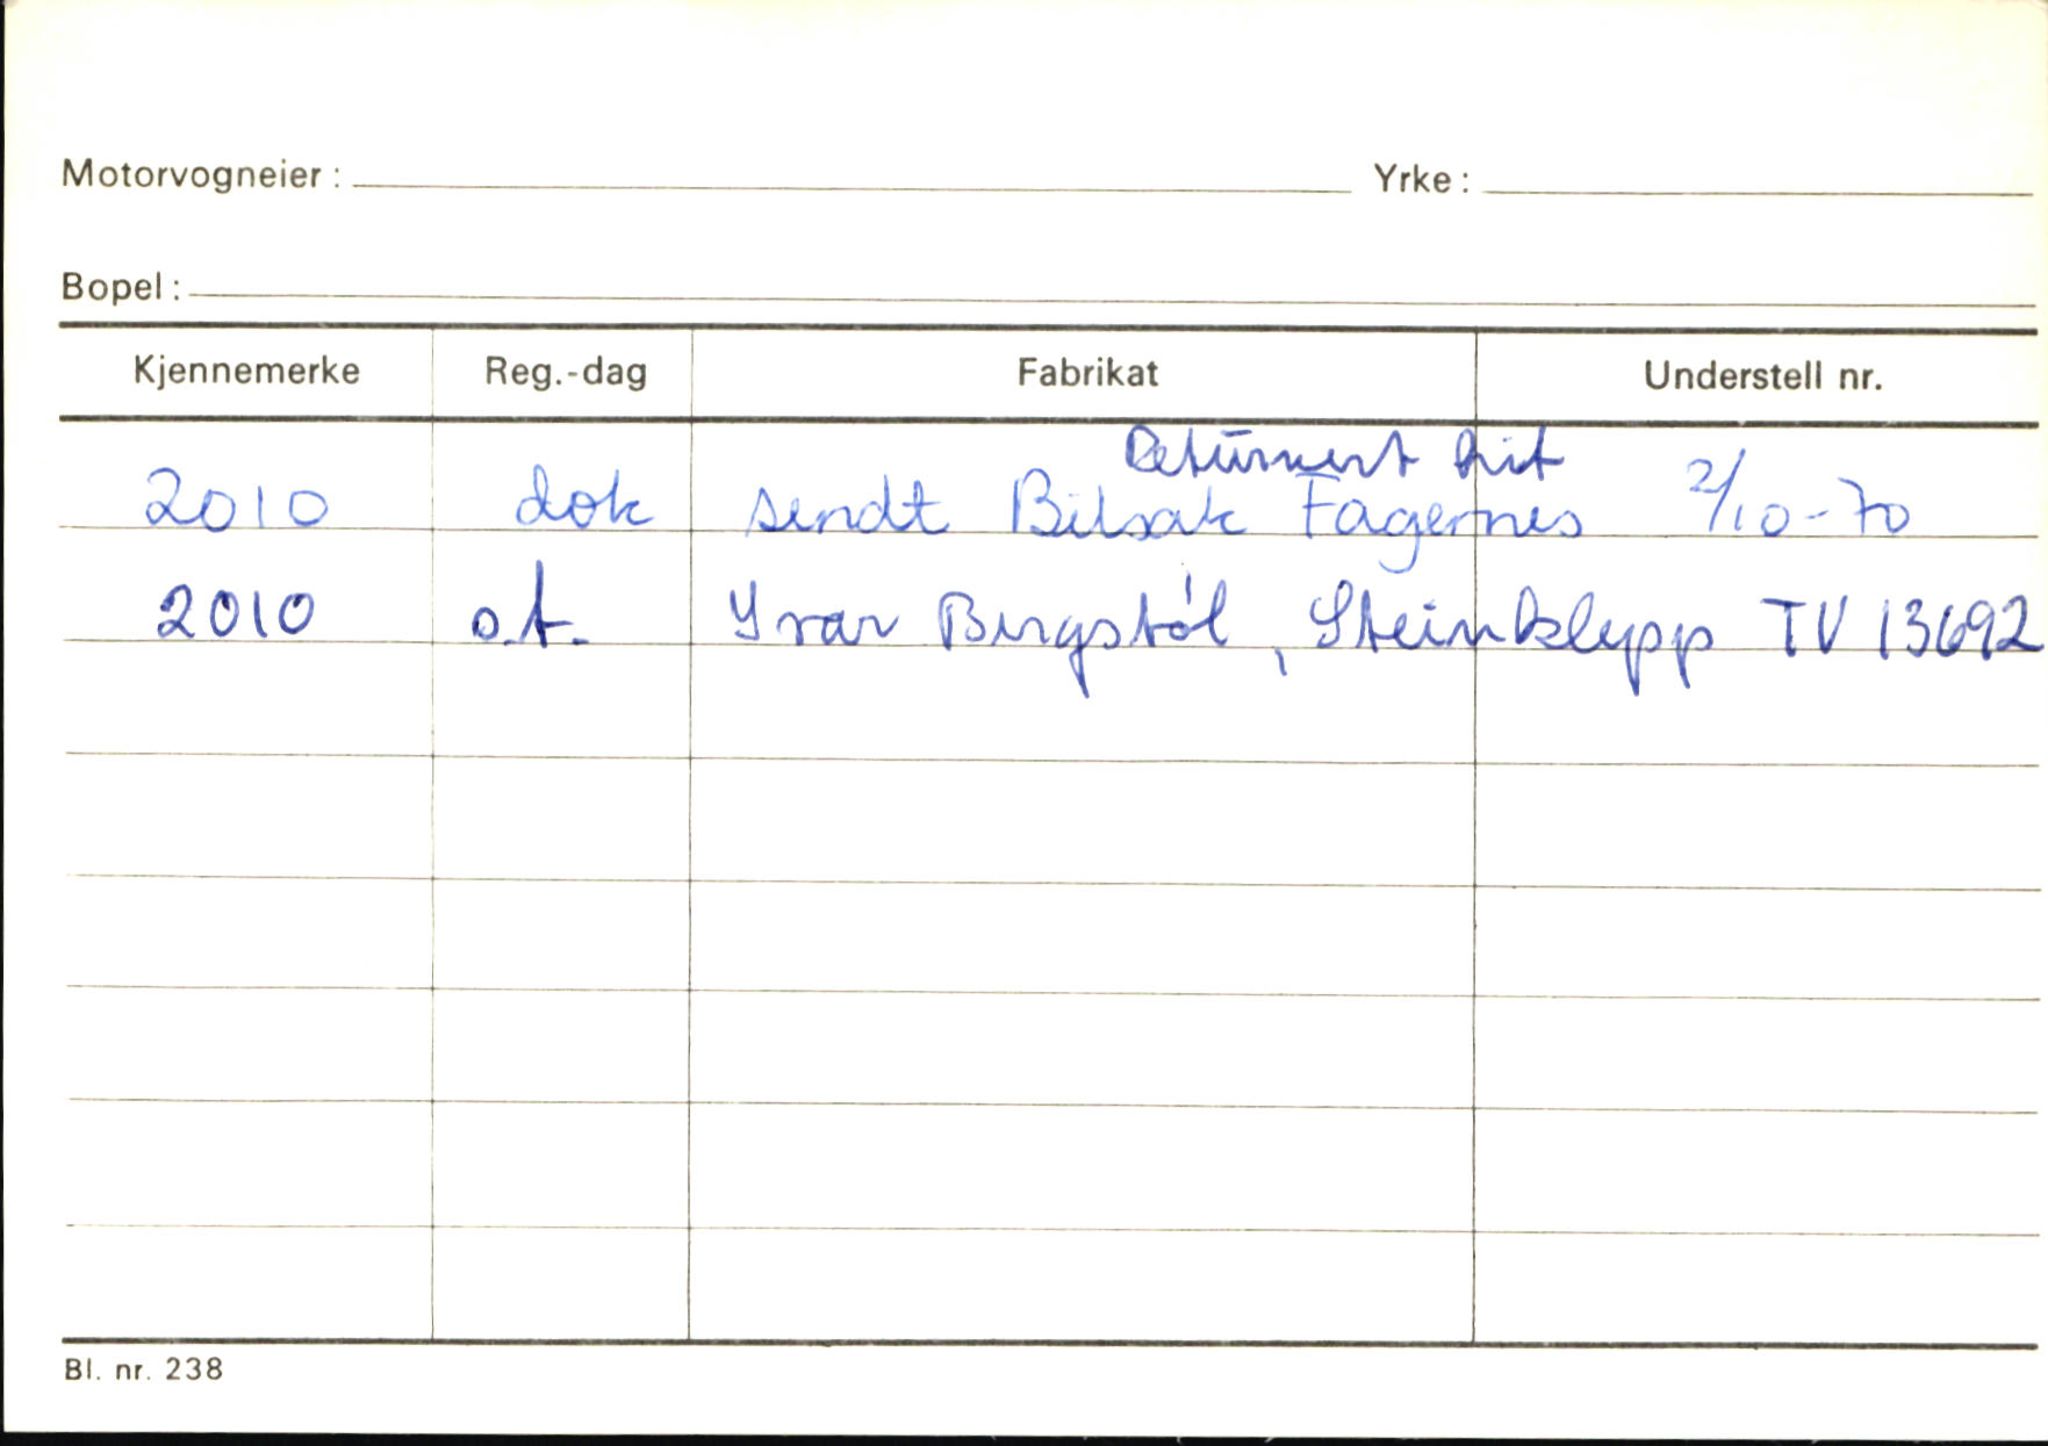 Motorvogneier : Yrke :
Bopel :
Kjennemerke Reg.-dag Fabrikat Understell nr.
Returnert hit
2010 dok sendt Bilsak Fagernes 2/10-70
2010 o.t. Ivar Bergstøl, Steinklepp TV 13692
Bl. nr. 238